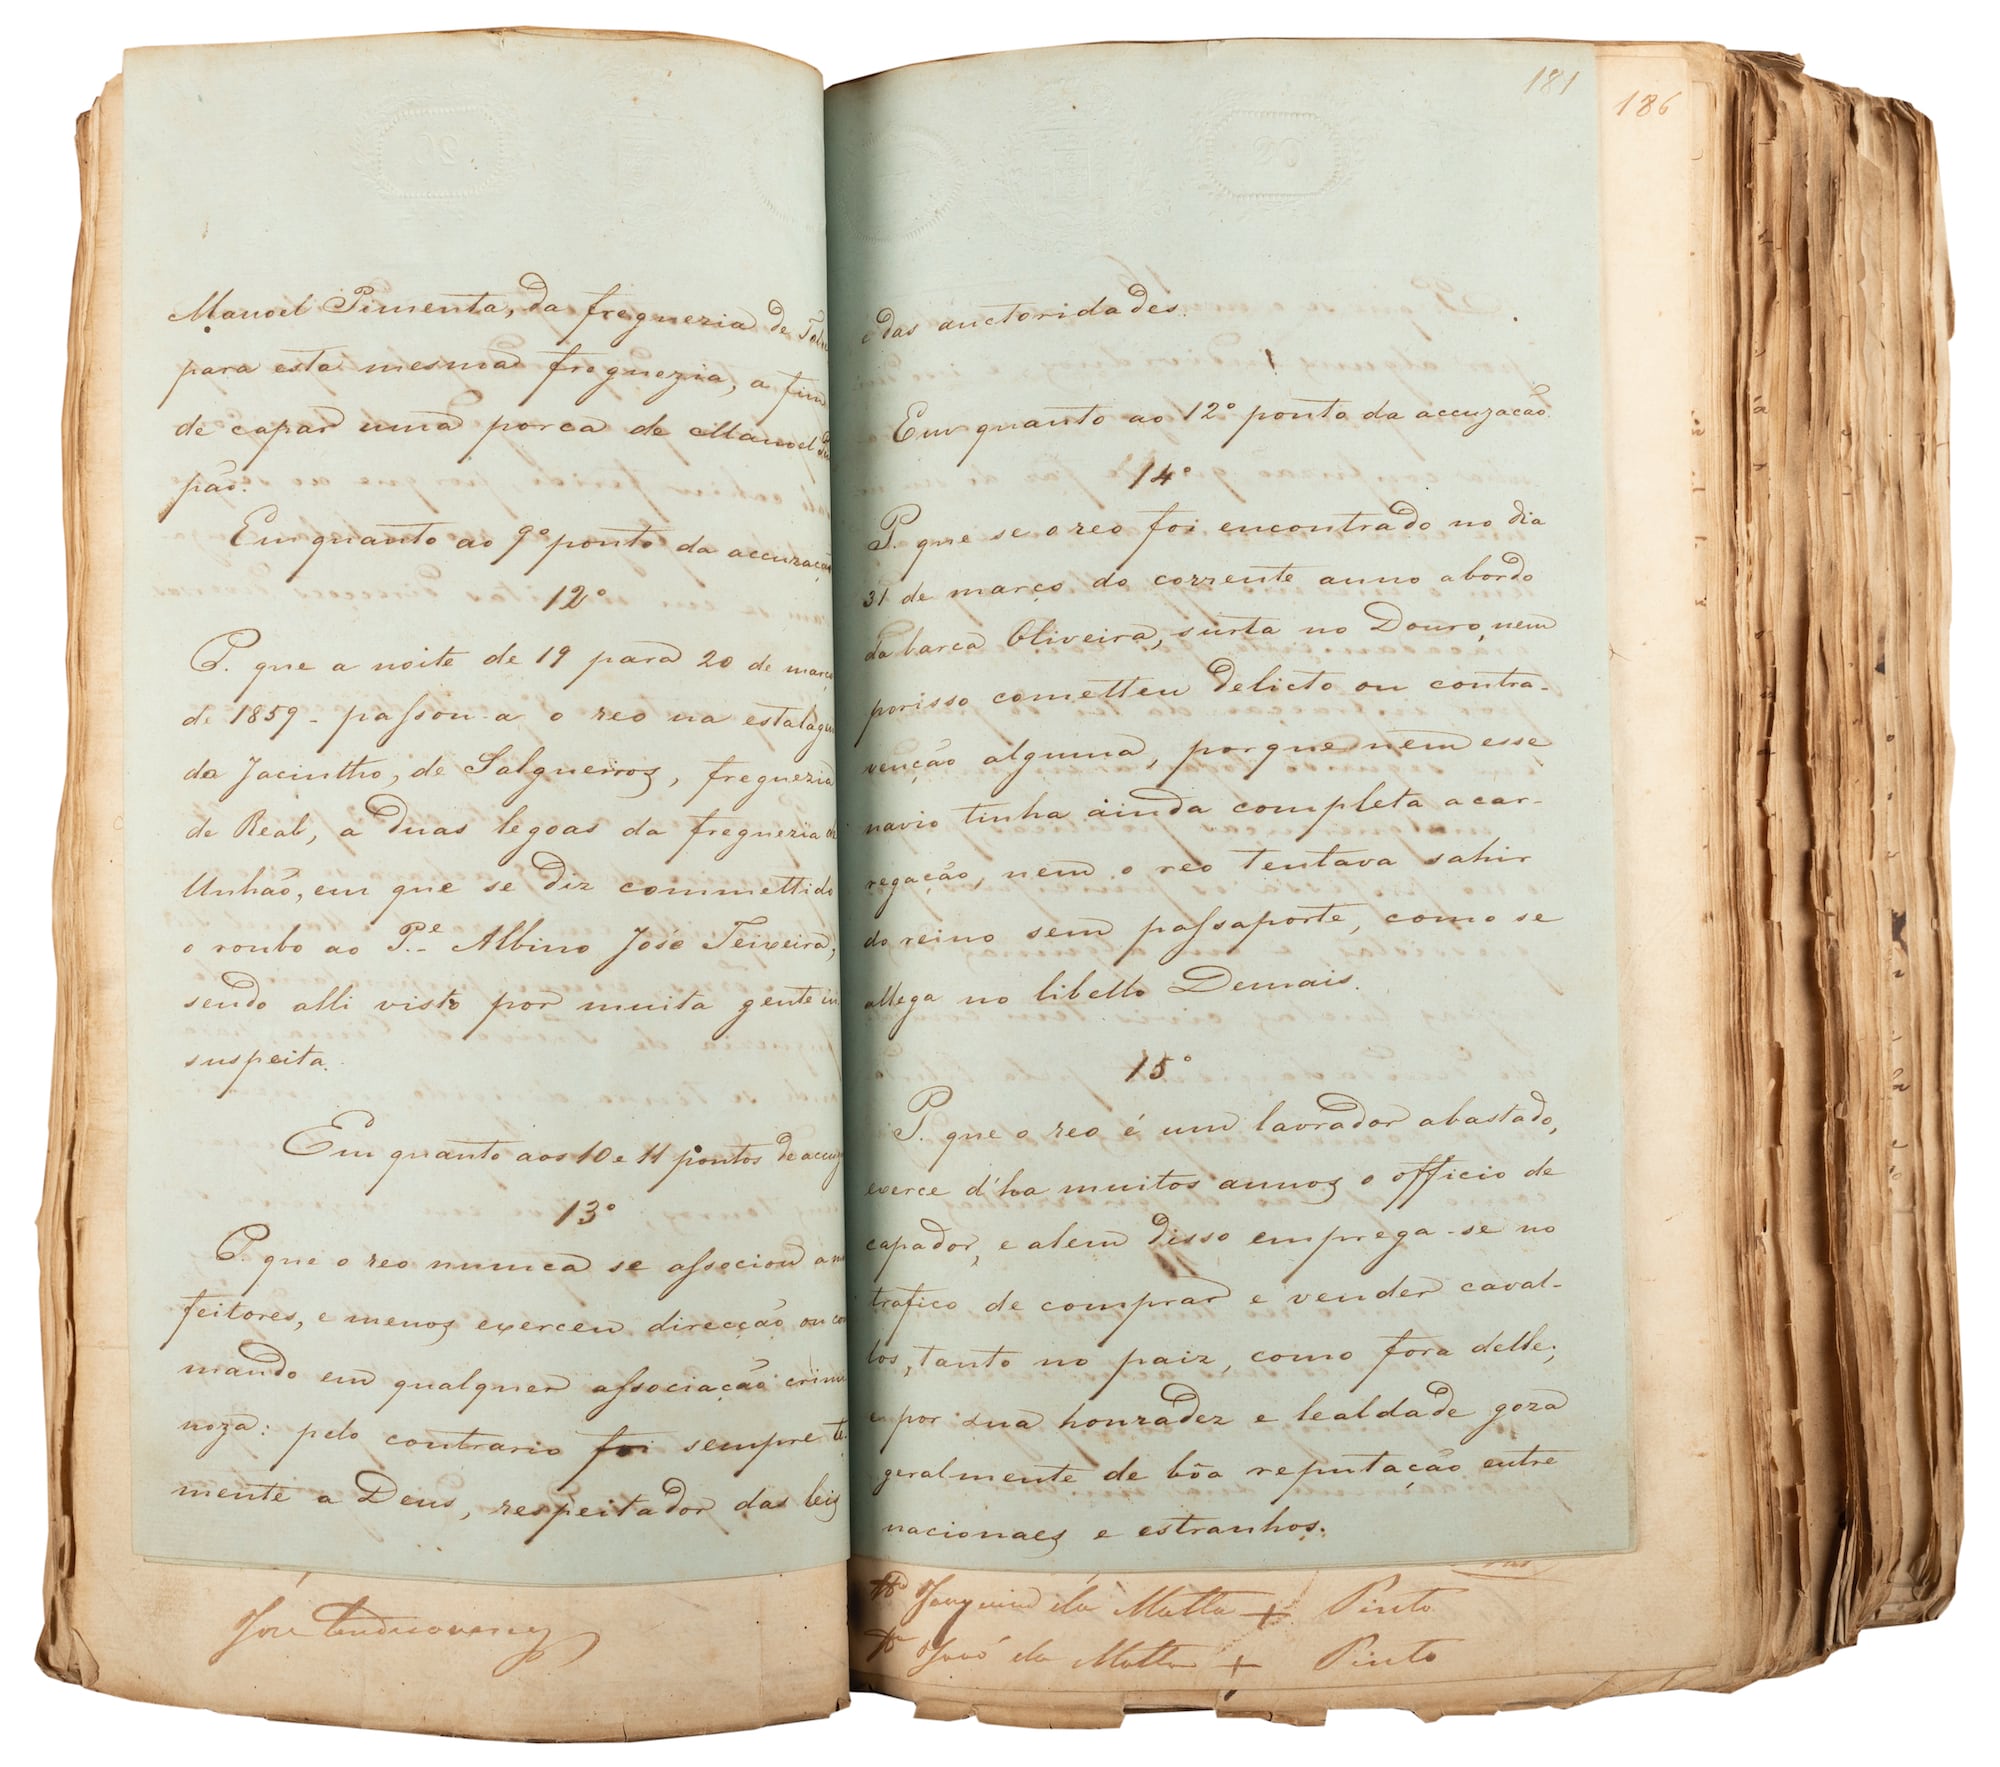 Manoel Pimenta, da freguezia de
para esta mesma freguezia, a fim
de capar uma porca de Manoel
pão.
Em quanto ao 9º ponto da accuzaçaõ
12º
P. que a noite de 19 para 20 de março
de 1859 - passou-a o reo na estalagem
da Jacintho, de Salgueiros, freguezia
de Real, a duas legoas da freguezia de
Unhaõ, em que se diz commettido
o roubo ao P.e Albino José Teixeira,
sendo alli visto por muita gente in
suspeita.
Em quanto aos 10 e 11 pontos de accuz
13º
P. que o reo nunca se associou a ma
feitores, e menos exerceu direcçaõ ou co
mando em qualquer associaçaõ crimi
noza: pelo contrario foi sempre te
mente a Deus, respeitador das leis
181
186
e das auctoridades.
Em quanto ao 12º ponto da accuzacaõ.
14º
P. que se o reo foi encontrado no dia
31 de março do corrente anno abordo
da barca Oliveira, surta no Douro, nem
porisso cometteu delicto ou contra-
vençaõ alguma, porque nem esse
navio tinha ainda completa a car-
regaçaõ, nem o reo tentava sahir
do reino sem passaporte, como se
allega no libello Demais.
15º
P. que o reo é um lavrador abastado,
exerce d'ha muitos annos o officio de
capador, e alem disso emprega-se no
trafico de comprar e vender caval-
los, tanto no paiz, como fora delle;
e por sua honradez e lealdade goza
geralmente de bôa reputaçaõ entre
nacionaes e estranhos.
José
Joaquim da Motta + Pinto
José da Motta + Pinto